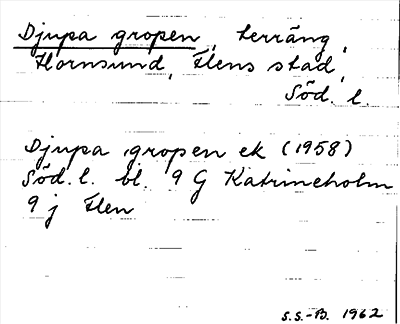 Djupa gropen, terräng,
Hornsund, Flens stad,
Söd. l.
Djupa gropen ek (1958)
Söd. l. bl. 9 G Katrineholm
9 j Flen
S.S.-B. 1962